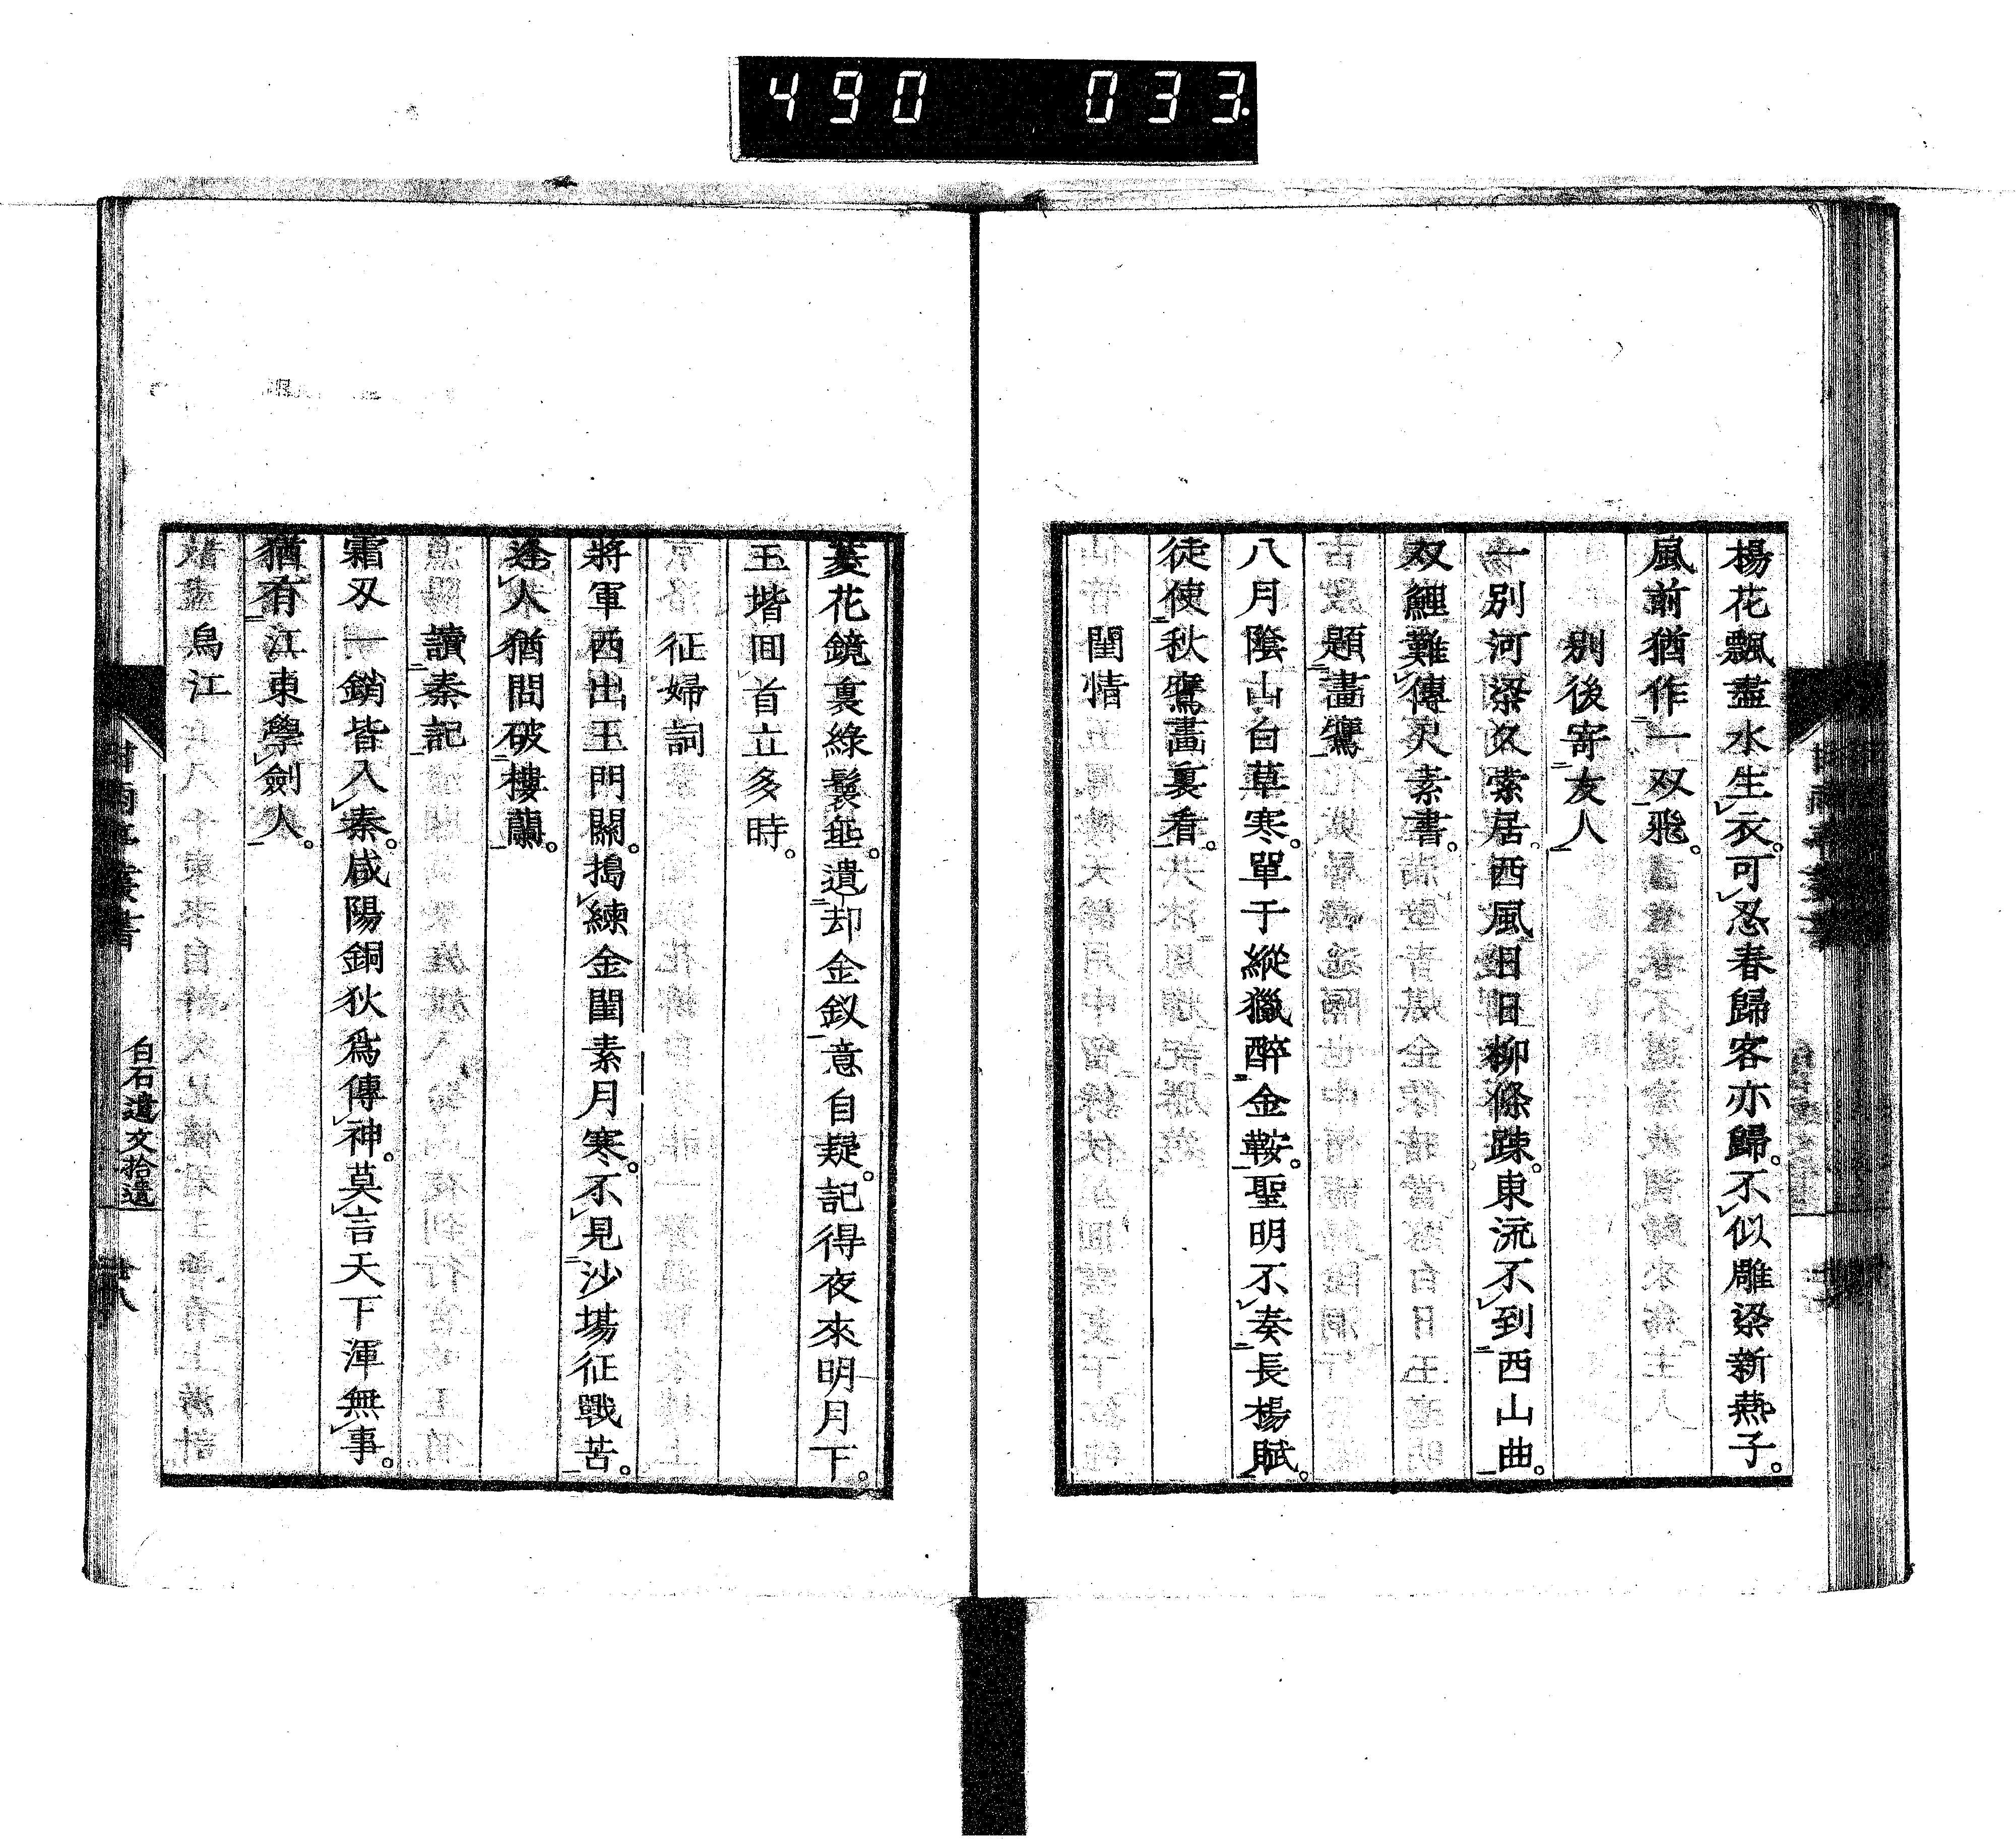 490 033
楊花飄盡水生衣。可忍春歸客亦歸。不似雕梁新燕子。
風前猶作一双飛。
別後寄友人
一別河梁久索居。西風日日柳條踈。東流不到西山曲。
双鯉難傳尺素書。
題畫鷹
八月陰山白草寒。單于縱獵醉金鞍。聖明不奏長楊賦。
徒使秋鷹畫裏看。
閨情
菱花鏡裏綠鬟垂。遺却金釵意自疑。記得夜來明月下。
玉堦囬首立多時。
征婦詞
將軍西出玉門關。搗練金閨素月寒。不見沙塲征戰苦。
逢人猶問破樓蘭。
讀秦記
霜刃一銷皆入秦。咸陽銅狄爲傳神。莫言天下渾無事。
猶有江東學劍人。
烏江
甘雨亭叢書
白石遺文拾遺